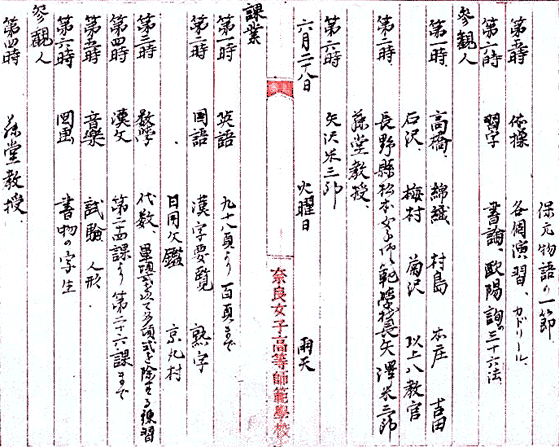 保元物語の一節
第五時 体操 各個演習、カドリール、
第六時 習字 書論、欧陽詢の三十六法
参観人
第一時 高橋、錦織 村島 本庄 吉田
石沢 梅村 菊沢 以上八教官
第二時 長野縣松本女子師範學校長矢澤米三郎
藤堂教授、
第六時 矢沢米三郎
六月二十八日 火曜日 雨天
奈良女子高等師範學校
課業
第一時 英語 九十八頁より百頁まで
第二時 国語 漢字要覧 熟字
日用文鑑 京丸村
第三時 数学 代数 單項式を以て多項式を除する練習
第四時 漢文 第二十四課より第二十六課まで
第五時 音樂 試験 人形
第六時 図画 書物の写生
参観人
第四時 藤堂教授